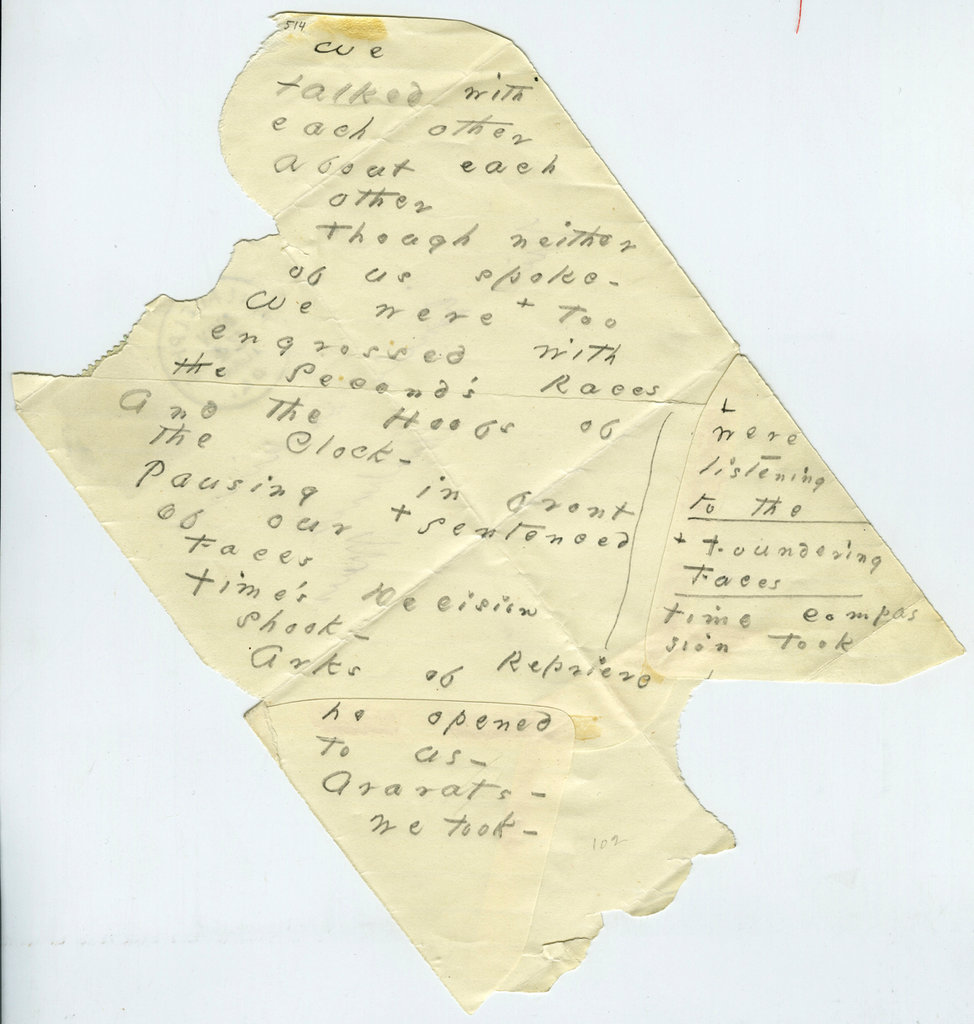 514
We
talked with
each other
about each
other
though neither
of us spoke -
We were + too
engrossed with
the Second's Races
And the Hoofs of
the Clock -
Pausing in front
of our + sentenced
Faces
Time's Decision
shook -
Arks of Reprieve
he opened
to us -
Ararats -
we took -
+
were
listening
to the
+ Foundering
Faces
Time compas
sion took
102